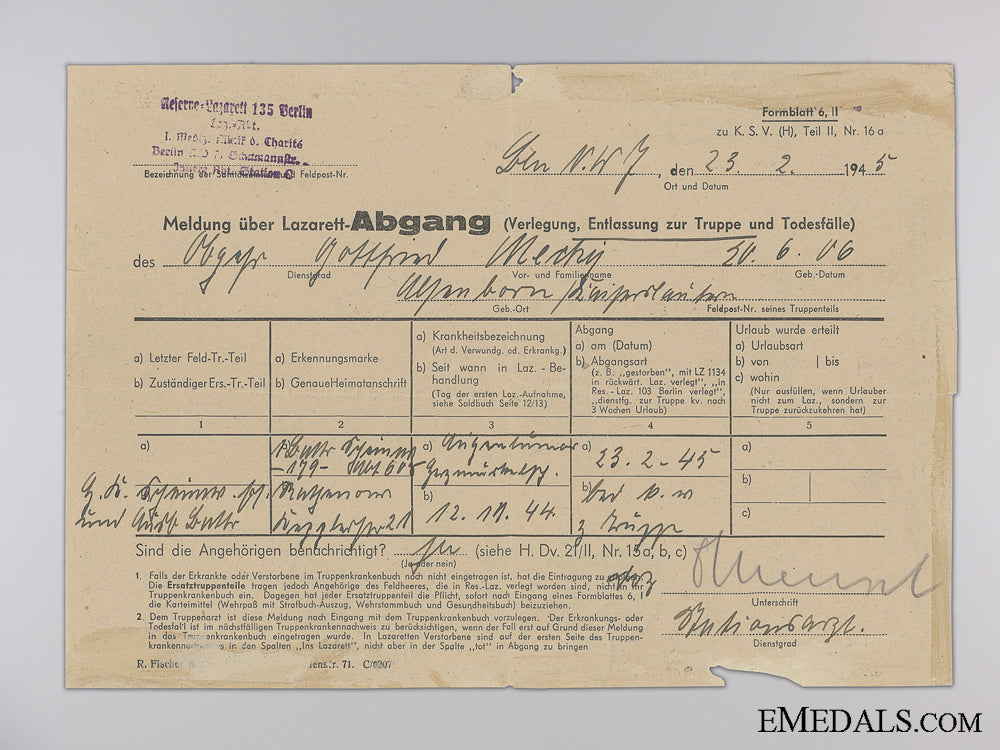 Reserve-Lazarett 135 Berlin
Laz.-Abt.
I. Mediz. Klinik d. Charité
Berlin Schumannstr.
Station
Bezeichnung der Feldpost-Nr.
Formblatt 6, II
zu K. S. V. (H), Teil II, Nr. 16a
Bln N.W 7, den 23. 2. 1945
Ort und Datum
Meldung über Lazarett-Abgang (Verlegung, Entlassung zur Truppe und Todesfälle)
des Obgefr Gottfried 30.6.06
Dienstgrad Vor- und Familienname Geb.-Datum
Alsenborn / Kaiserslautern
Geb.-Ort Feldpost-Nr. seines Truppenteils
a) Letzter Feld-Tr.-Teil
b) Zuständiger Ers.-Tr.-Teil
a) Erkennungsmarke
b) Genaue Heimatanschrift
a) Krankheitsbezeichnung
(Art d. Verwundg. od. Erkrankg.)
b) Seit wann in Laz. - Be-
handlung
(Tag der ersten Laz.-Aufnahme,
siehe Soldbuch Seite 12/13)
Abgang
a) am (Datum)
b) Abgangsart
(z. B. „gestorben", mit LZ 1134
in rückwärt. Laz. verlegt", „in
Res. - Laz. 103 Berlin verlegt",
„dienstfg. zur Truppe kv. nach
3 Wochen Urlaub)
Urlaub wurde erteilt
a) Urlaubsart
b) von | bis
c) wohin
(Nur ausfüllen, wenn Urlauber
nicht zum Laz., sondern zur
Truppe zurückzukehren hat)
1 2 3 4 5
a)
und Ausb Battr
Battr
-179-
Rathenow
a)
b)
12. 11. 44.
a) 23.2-45
b) bed k.v
z Truppe
a)
b)
c)
Sind die Angehörigen benachrichtigt? ja (siehe H. Dv. 21/II, Nr. 15a, b, c)
(Ja oder nein)
1. Falls der Erkrankte oder Verstorbene im Truppenkrankenbuch noch nicht eingetragen ist, hat die Eintragung zu
Die Ersatztruppenteile tragen jedoch Angehörige des Feldheeres, die in Res.-Laz. verlegt worden sind, nicht in ihr
Truppenkrankenbuch ein. Dagegen hat jeder Ersatztruppenteil die Pflicht, sofort nach Eingang eines Formblattes 6, I
die Karteimittel (Wehrpaß mit Strafbuch-Auszug, Wehrstammbuch und Gesundheitsbuch) beizuziehen.
2. Dem Truppenarzt ist diese Meldung nach Eingang mit dem Truppenkrankenbuch vorzulegen. Der Erkrankungs- oder
Todesfall ist in nächstfälligen Truppenkrankennachweis zu berücksichtigen, wenn der Fall erst auf Grund dieser Meldung
in das Truppenkrankenbuch eingetragen wurde. In Lazaretten Verstorbene sind auf der ersten Seite des Truppen-
krankennachweises in den Spalten „Ins Lazarett", nicht aber in der Spalte „tot" in Abgang zu bringen
Unterschrift
Stationsarzt.
Dienstgrad
R. Fischer & 71. C/0207
EMEDALS.COM